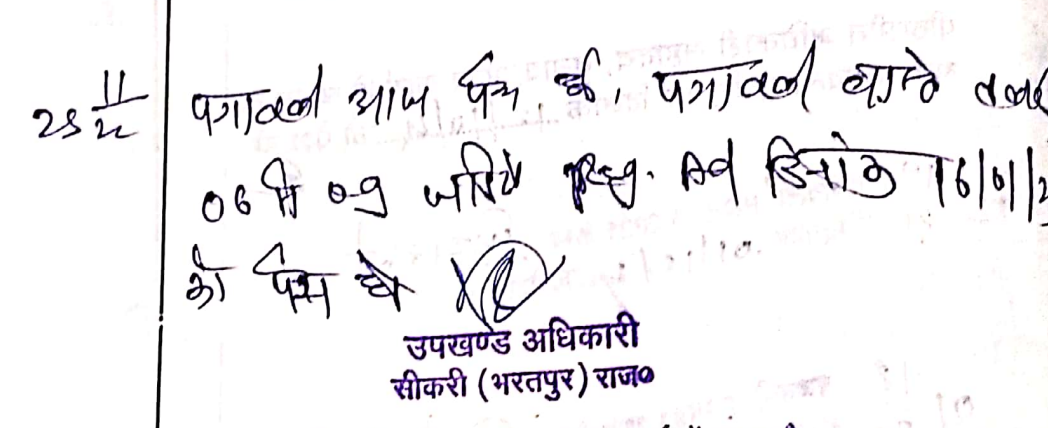 25 11/22 पत्रावली आज पेश हुई, पत्रावली वास्ते तलबी
06 से 09 जरिये रजि. दिनांक 16/01/2
को पेश हो
उपखण्ड अधिकारी
सीकरी (भरतपुर) राज०